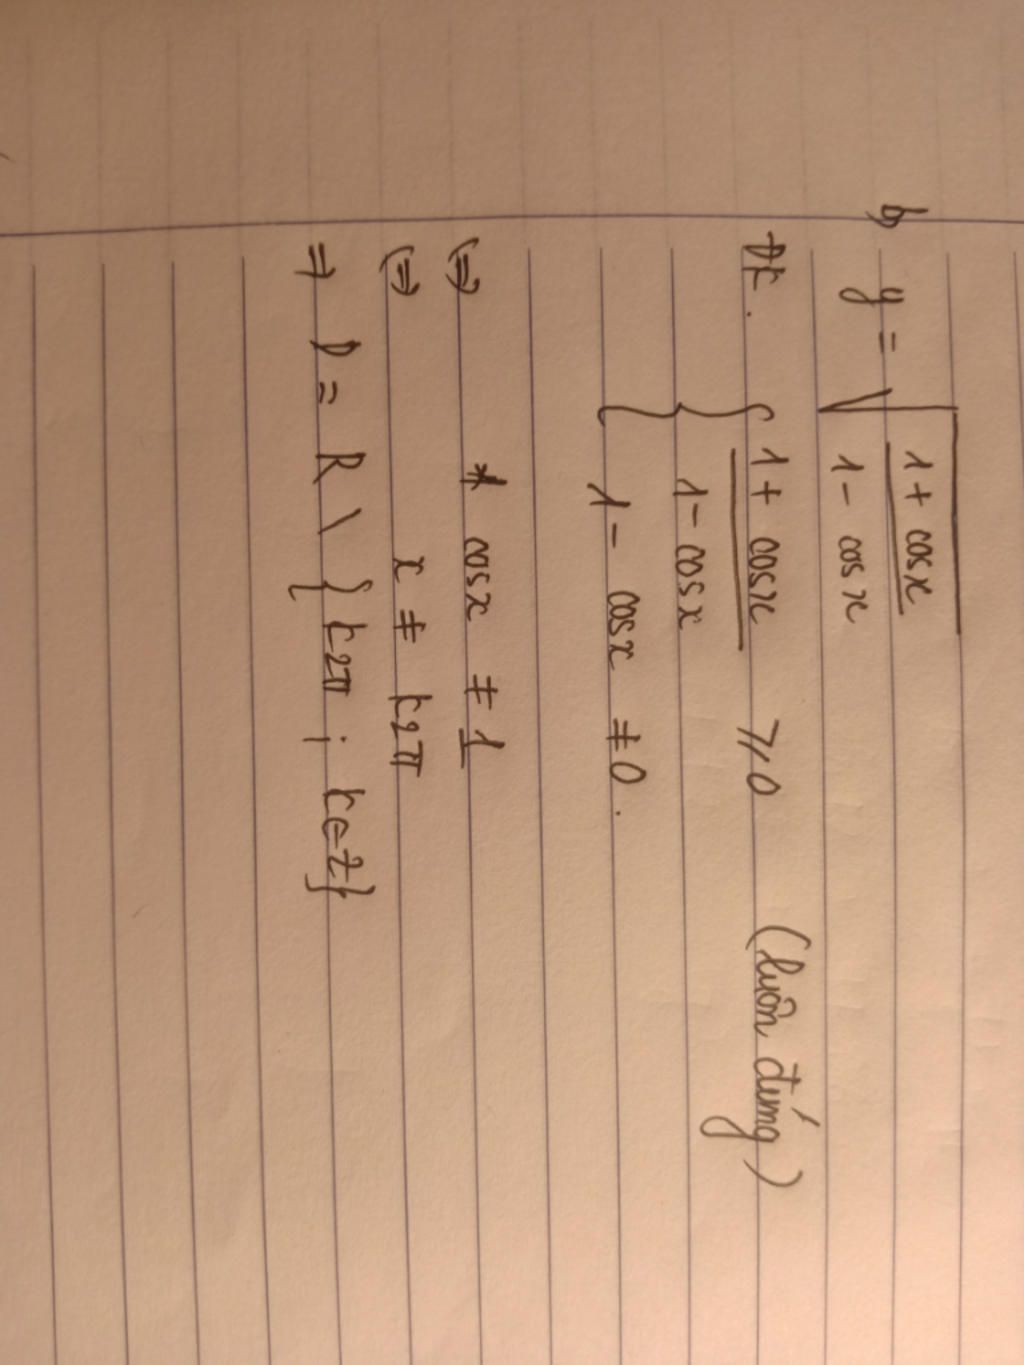 b y = √((1 + cosx)/(1 - cosx))
ĐK. { (1 + cosx)/(1 - cosx) ⩾ 0 (luôn đúng)
1 - cosx ≠ 0.
(=) cosx ≠ 1
(=) x ≠ k2π
=> D = R \ { k2π ; k∈Z}